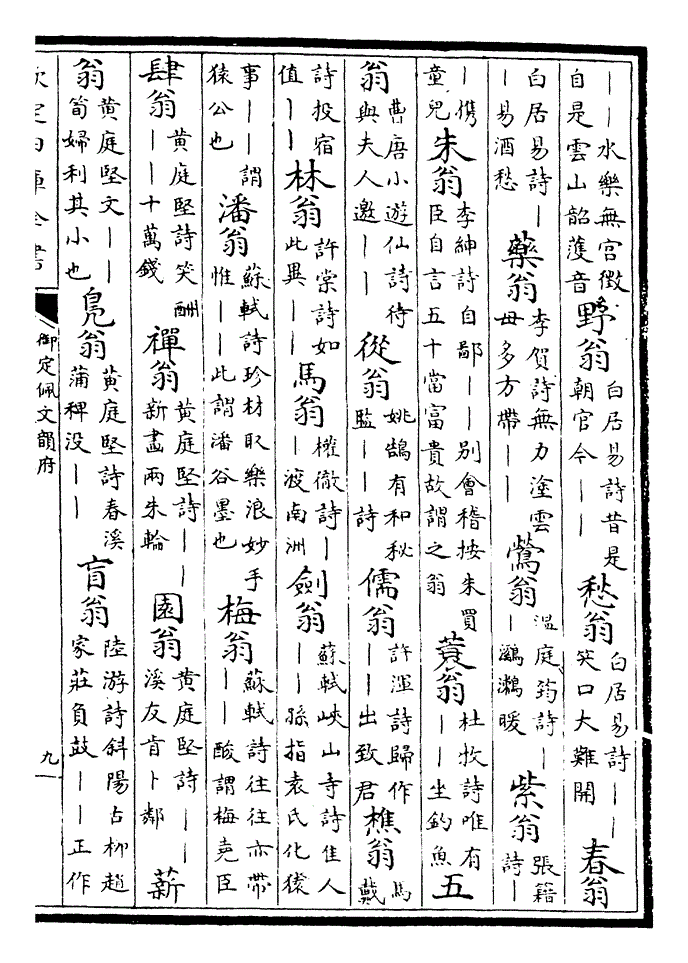 ——水樂無宮徵自是雲山韶濩音野翁白居易詩昔是朝官今——愁翁白居易詩——笑口大難開春翁
白居易詩——易酒愁藥翁李賀詩無力塗雲母多方帶——鶯翁溫庭筠詩——鸂鶒暖紫翁張籍詩—
—㩦童兒朱翁李紳詩自鄙——別會稽按朱買臣自言五十當富貴故謂之翁蓑翁杜牧詩唯有——坐釣魚五
翁曹唐小遊仙詩待與夫人邀——從翁姚鵠有和秘監——詩儒翁許渾詩歸作——出致君樵翁馬戴
詩投宿值——林翁許棠詩如此異——馬翁權徹詩——渡南洲劍翁蘇軾峽山寺詩佳人——孫指袁氏化猿
事——謂猿公也潘翁蘇軾詩珍材取樂浪妙手惟——此謂潘谷墨也梅翁蘇軾詩往往亦帶——酸謂梅堯臣
肆翁黃庭堅詩笑酬——十萬錢禪翁黃庭堅詩——新畫兩朱輪園翁黃庭堅詩——溪友肯卜鄰薪
翁黃庭堅文——笱婦利其小也鳧翁黃庭堅詩春溪蒲稗没——盲翁陸游詩斜陽古柳趙家莊負鼓——正作
欽定四庫全書
御定佩文韻府
九